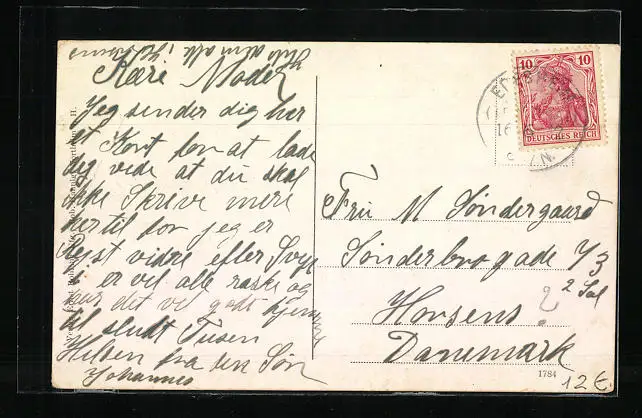 Kære Moder
Jeg sender dig her
et Kort for at lade
dig vide at du skal
ikke Skrive mere
hertil for jeg er
rejst videre efter
i er vel alle raske og
har det vel godt hjemme
til slut Tusen
Hilsen fra din Søn
Johannes
10 10
DEUTSCHES REICH
Fru M Søndergaard
Sønderbrogade 73
2 Sal
Horsens
Danemark
1784
12 €